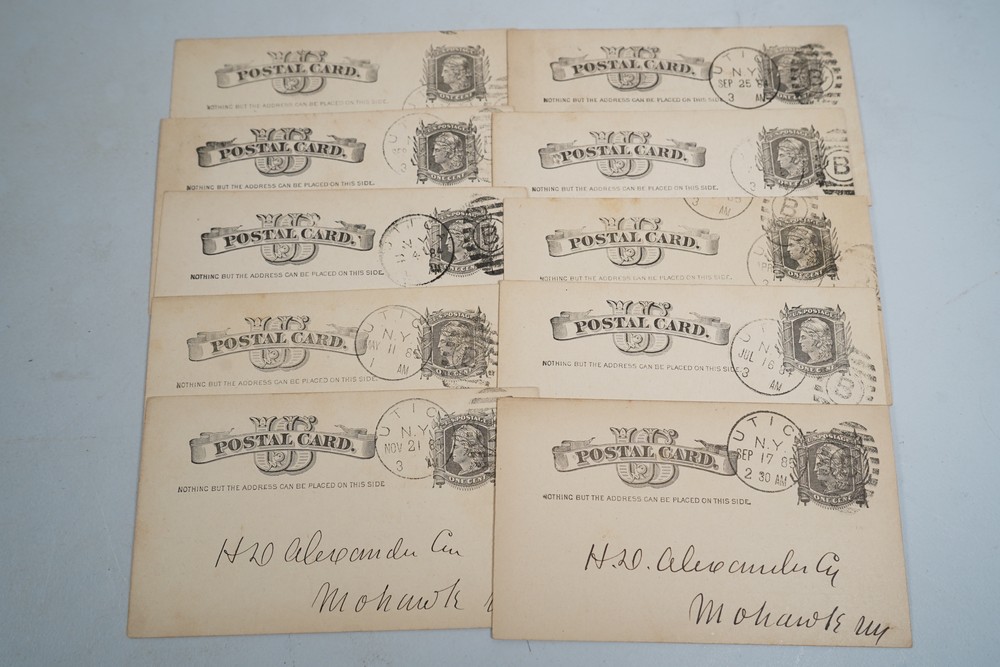 US
POSTAL CARD.
NOTHING BUT THE ADDRESS CAN BE PLACED ON THIS SIDE.
ONE CENT
US
POSTAL CARD.
NOTHING BUT THE ADDRESS CAN BE PLACED ON THIS SIDE.
UTIC
N.Y.
SEP 25
3 AM
B
US
POSTAL CARD.
NOTHING BUT THE ADDRESS CAN BE PLACED ON THIS SIDE.
U.S. POSTAGE
ONE CENT
3
US
POSTAL CARD.
NOTHING BUT THE ADDRESS CAN BE PLACED ON THIS SIDE.
U.S. POSTAGE
ONE CENT
3
B
US
POSTAL CARD.
NOTHING BUT THE ADDRESS CAN BE PLACED ON THIS SIDE.
UTIC
N.Y.
ONE CENT
B
3
AM
B
US
POSTAL CARD.
NOTHING BUT THE ADDRESS CAN BE PLACED ON THIS SIDE.
ONE CENT
US
POSTAL CARD.
NOTHING BUT THE ADDRESS CAN BE PLACED ON THIS SIDE.
UTIC
N.Y.
MAY 11
AM
ONE CENT
US
POSTAL CARD.
NOTHING BUT THE ADDRESS CAN BE PLACED ON THIS SIDE.
U.S. POSTAGE
ONE CENT
UTI
N.Y.
JUL 16
3 AM
B
US
POSTAL CARD.
NOTHING BUT THE ADDRESS CAN BE PLACED ON THIS SIDE
UTIC
N.Y.
NOV 21 8
3
U.S. POSTAGE
ONE CENT
H D Alexander
Mohawk
US
POSTAL CARD.
NOTHING BUT THE ADDRESS CAN BE PLACED ON THIS SIDE.
UTIC
N.Y.
SEP 17
2 30 AM
ONE CENT
H.D. Alexander
Mohawk NY